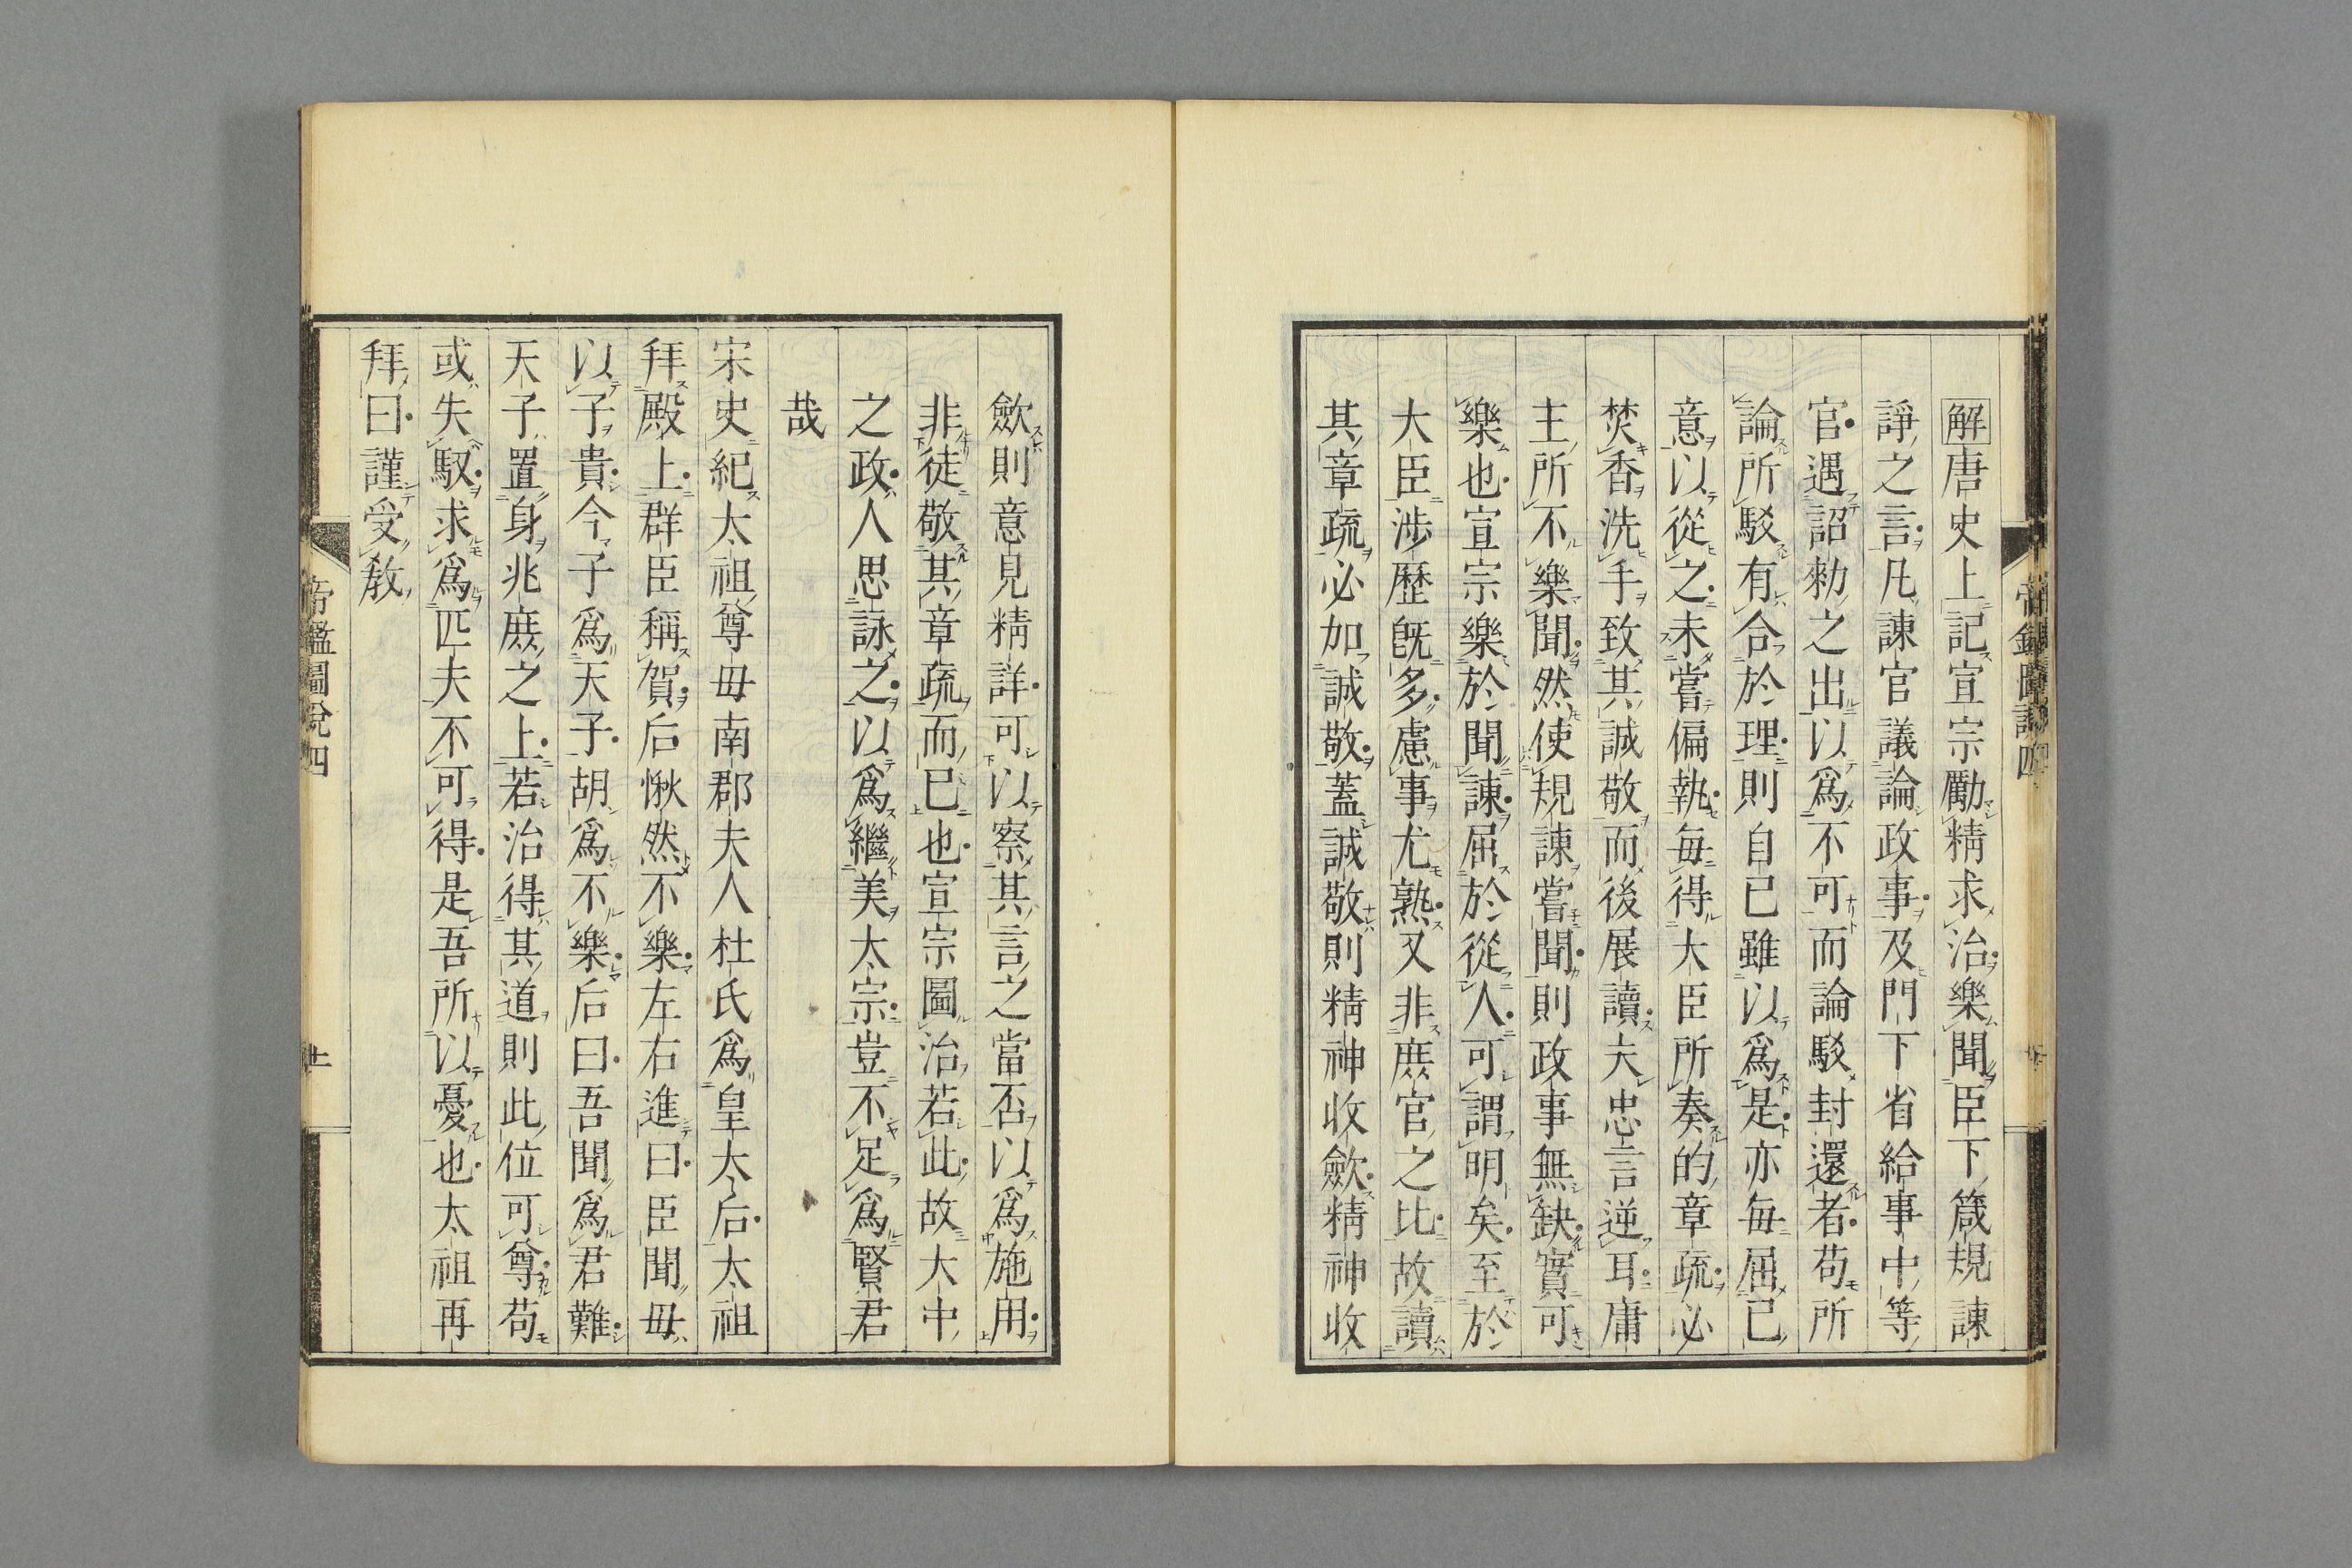 解唐史上記宣宗勵精求治樂聞臣下箴規諫
諍之言凡諫官議論政事及門下省給事中等
官遇詔勅之出以爲不可而論駁封還者苟所
論所駁有合於理則自已雖以爲是亦每屈已
意以從之未嘗偏執每得大臣所奏的章疏必
焚香洗手致其誠敬而後展讀夫忠言逆耳庸
主所不樂聞然使規諫嘗聞則政事無缺實可
樂也宣宗樂於聞諫屈於從人可謂明矣至於
大臣涉歷既多慮事尤熟又非庶官之比故讀
其章疏必加誠敬蓋誠敬則精神收歛精神收
歛則意見精詳可以察其言之當否以爲施用
非徒敬其章疏而已也宣宗圖治若此故大中
之政人思詠之以爲繼美太宗豈不足爲賢君
哉
宋史紀太祖尊毋南郡夫人杜氏爲皇太后太祖
拜殿上群臣稱賀后愀然不樂左右進曰臣聞毋
以子貴今子爲天子胡爲不樂后曰吾聞爲君難
天子置身兆庶之上若治得其道則此位可尊苟
或失馭求爲匹夫不可得是吾所以憂也太祖再
拜曰謹受教
帝鑑圖說四